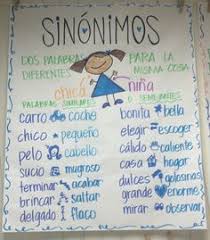 SINÓNIMOS
DOS PALABRAS PARA LA
DIFERENTES MISMA COSA
chica niña
PALABRAS SIMILARES O SEMEJANTES
carro coche
chico pequeño
pelo cabello
sucio mugroso
terminar acabar
brincar saltar
delgado flaco
bonita bella
elegir escoger
cálido caliente
casa hogar
dulces golosinas
grande enorme
mirar observar